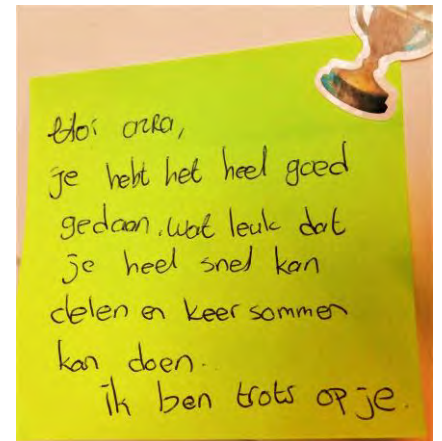 Hoi azra,
je hebt het heel goed
gedaan. wat leuk dat
je heel snel kan
delen en keer sommen
kan doen.
ik ben trots op je.